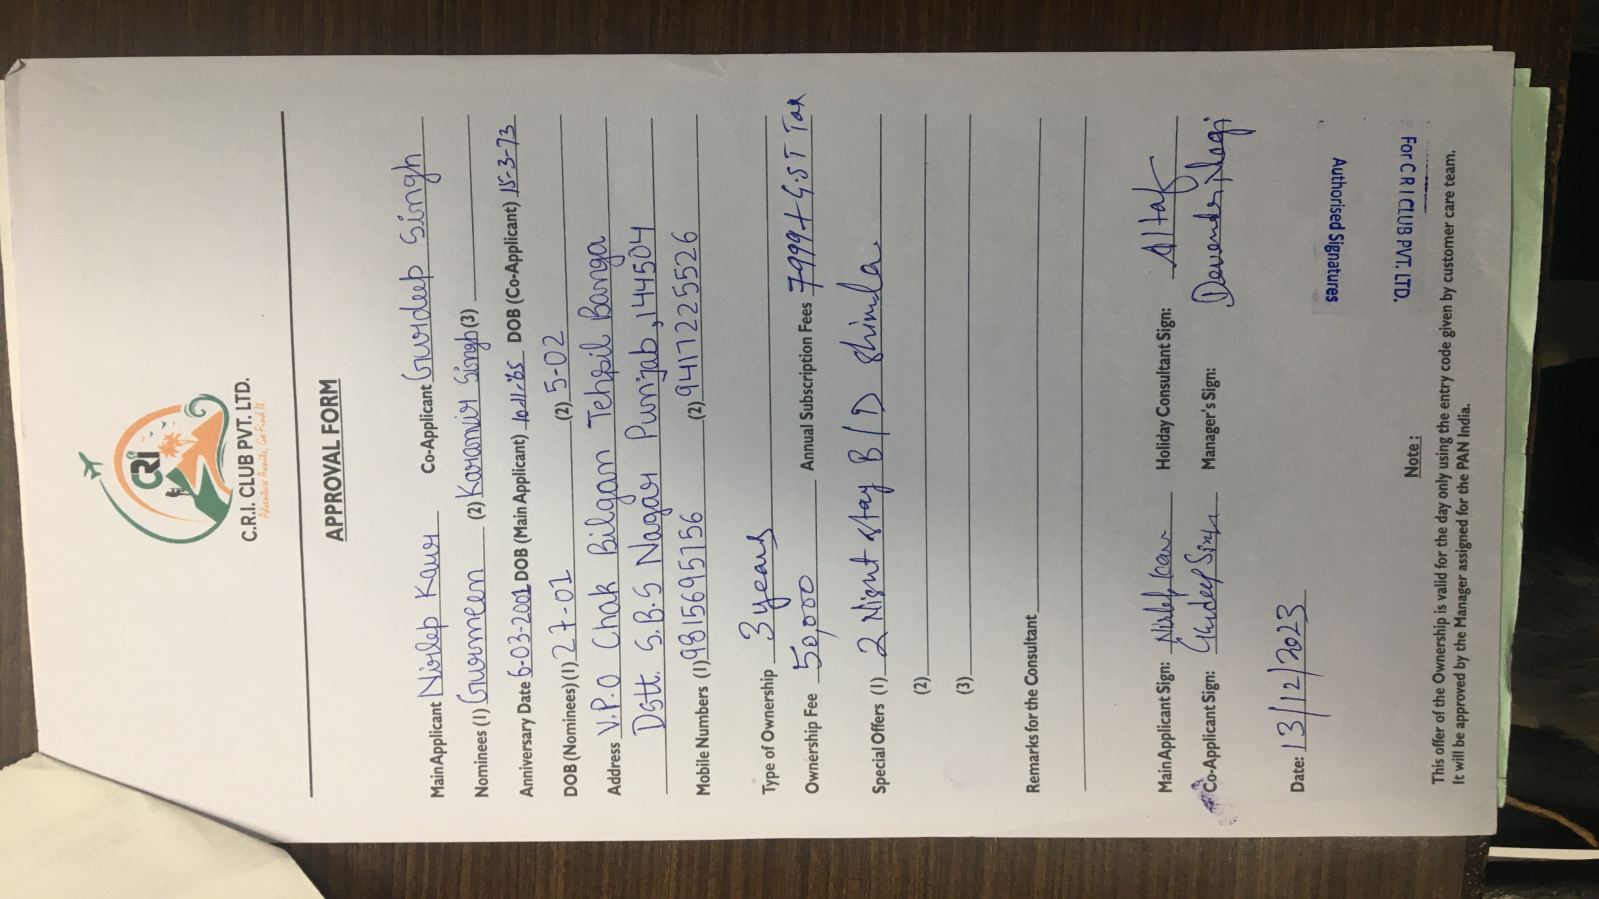 CRI
C.R.I. CLUB PVT. LTD.
Adventure Awaits, Go Find It.
APPROVAL FORM
Main Applicant Nirlep Kaur Co-Applicant Gurdeep Singh
Nominees (1) Gurmeen (2) Karamvir Singh (3)
Anniversary Date 6-03-2001 DOB (Main Applicant) DOB (Co-Applicant) 15-3-73
DOB (Nominees) (1) 27-01 (2) 5-02
Address V.P.O Chak Bilgan Tehsil Banga
Dstt. S.B.S Nagar Punjab, 144504
Mobile Numbers (1) 9815695156 (2) 9417225526
Type of Ownership 3 years
Ownership Fee 50,000 Annual Subscription Fees 7999 + G.S.T Tax
Special Offers (1) 2 Night stay B/D Shimla
(2)
(3)
Remarks for the Consultant
Main Applicant Sign: Nirlep Kaur Holiday Consultant Sign: Altaf
Co-Applicant Sign: Gurdeep Singh Manager's Sign: Devender Negi
Date: 13/12/2023
Authorised Signatures
For C R I CLUB PVT. LTD.
Note :
This offer of the Ownership is valid for the day only using the entry code given by customer care team.
It will be approved by the Manager assigned for the PAN India.